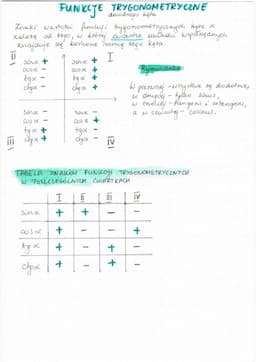 FUNKCJE TRYGONOMETRYCZNE
dowolnego kąta
Znaki wartości funkcji trygonometrycznych kąta α
zależą od tego, w której ćwiartce układu współrzędnych
znajduje się końcowe ramię tego kąta.
II
sinα +
cosα -
tgα -
ctgα -
I
sinα +
cosα +
tgα +
ctgα +
III
sinα -
cosα -
tgα +
ctgα +
IV
sinα -
cosα +
tgα -
ctgα -
W pierwszej - wszystkie są dodatnie,
w drugiej - tylko sinus,
w trzeciej - tangens i cotangens,
a w czwartej - cosinus.
TABELA ZNAKÓW FUNKCJI TRYGONOMETRYCZNYCH
W POSZCZEGÓLNYCH ĆWIARTKACH
I II III IV
sinα + + - -
cosα + - - +
tgα + - + -
ctgα + - + -